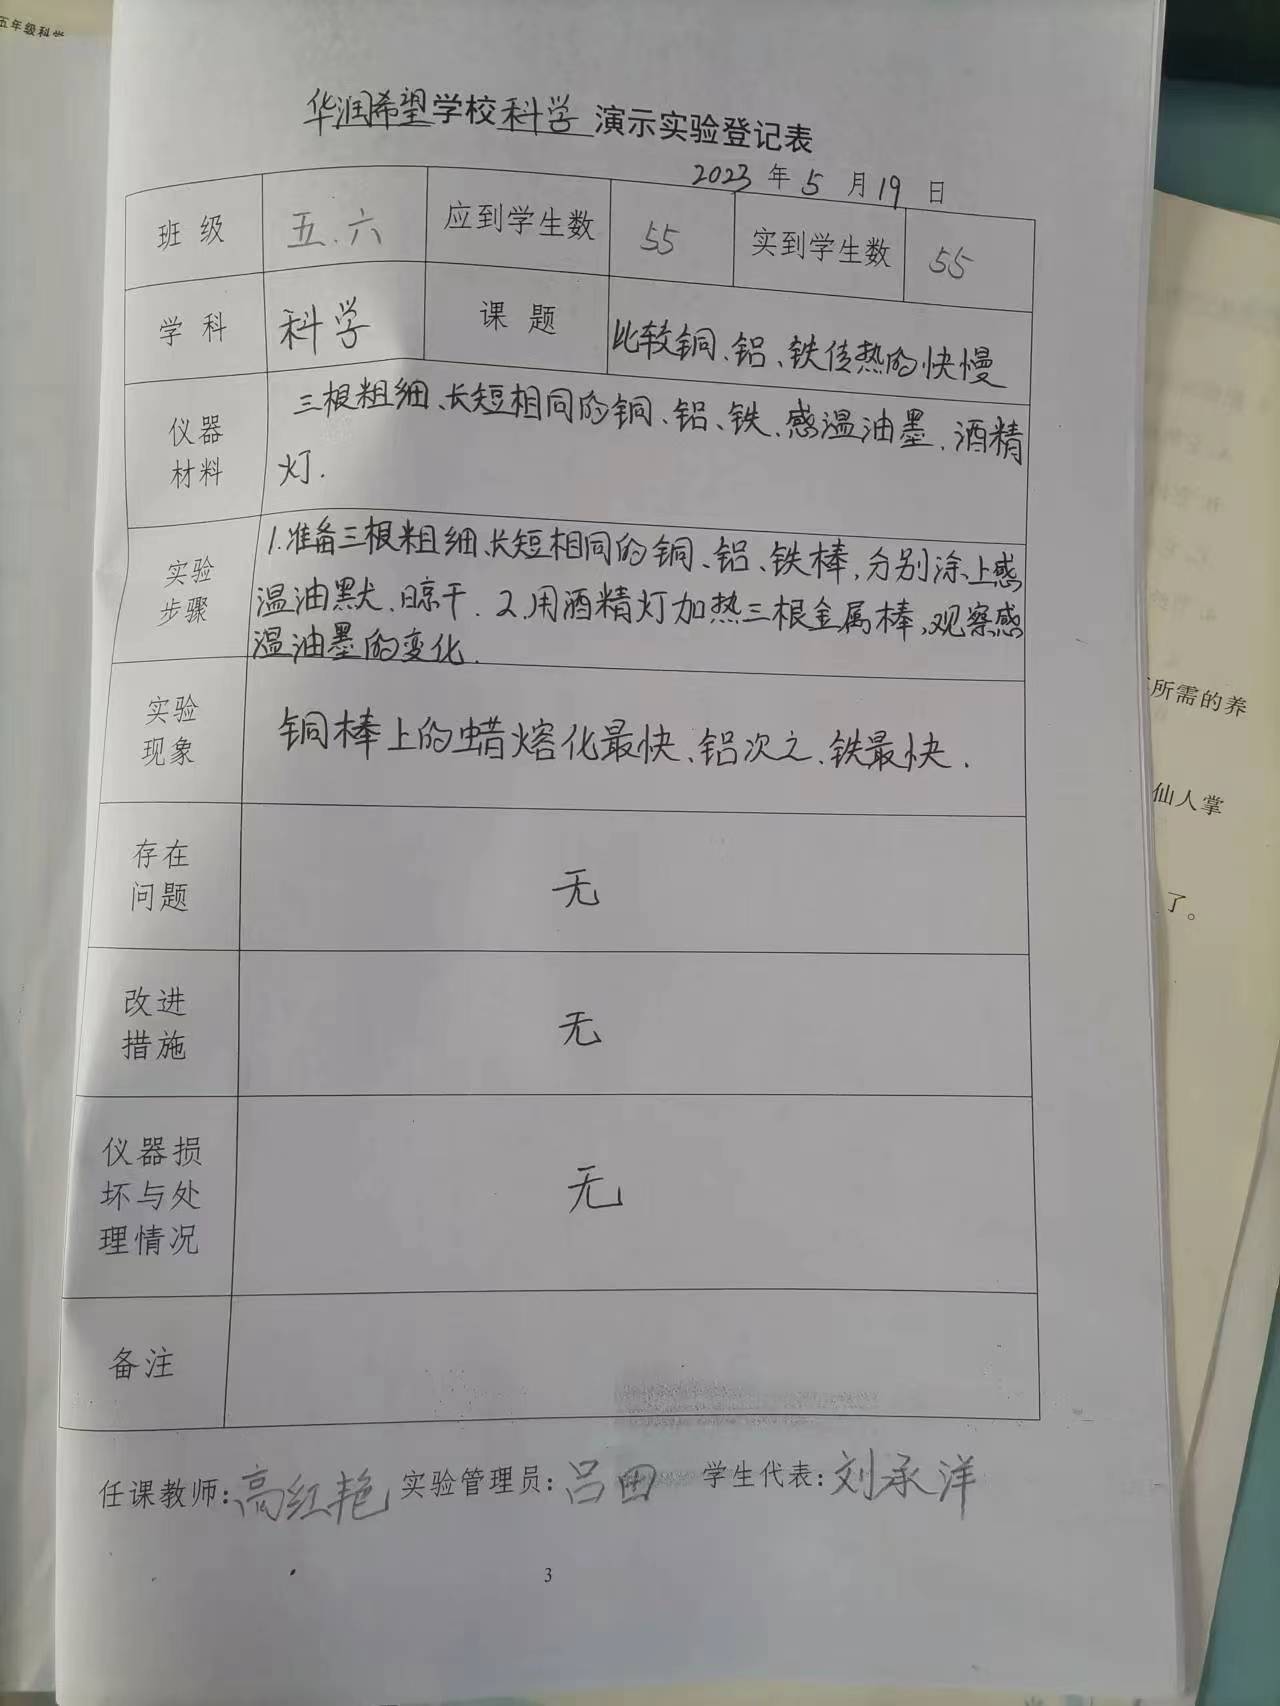 五年级科学
华润希望学校科学演示实验登记表
2023年5月19日
班级 五.六 应到学生数 55 实到学生数 55
学科 科学 课题 比较铜、铝、铁传热的快慢
仪器
材料
三根粗细、长短相同的铜、铝、铁、感温油墨、酒精
灯.
实验
步骤
1.准备三根粗细、长短相同的铜、铝、铁棒,分别涂上感
温油默、晾干. 2.用酒精灯加热三根金属棒,观察感
温油墨的变化.
实验
现象
铜棒上的蜡熔化最快、铝次之、铁最快.
存在
问题
无
改进
措施
无
仪器损
坏与处
理情况
无
备注
任课教师:高红艳 实验管理员:吕田 学生代表:刘承洋
3
所需的养
仙人掌
了。